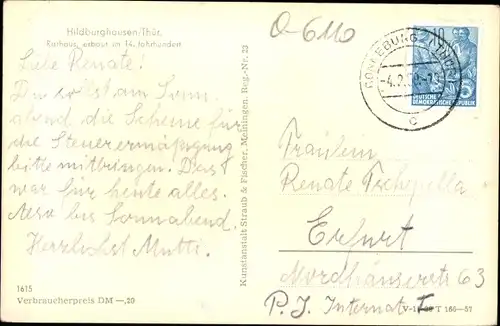 Hildburghausen/Thür.
Rathaus, erbaut im 14. Jahrhundert
Liebe Renate!
Du sollst am Sonn-
abend die Scheine für
die Steuerermäßigung
bitte mitbringen. Das
war für heute alles.
Also bis Sonnabend.
Herzlichst Mutti.
1615
Verbraucherpreis DM —,20
Kunstanstalt Straub & Fischer, Meiningen. Reg.-Nr. 23
O-6110
10
DEUTSCHE
DEMOKRATISCHE REPUBLIK
c
Fräulein
Renate
Erfurt
Nordhäuserstr 63
P.J. Internat I
T 166-57